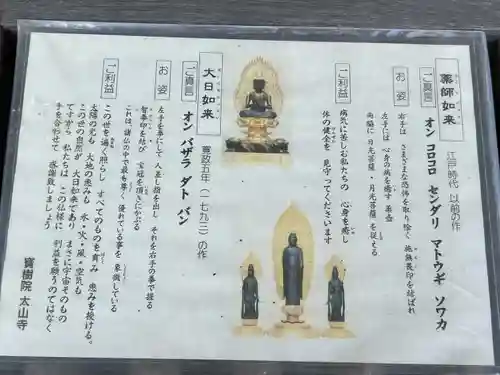 薬師如来
江戸時代 以前の作
ご真言
オン コロコロ センダリ マトウギ ソワカ
お姿
右手は さまざまな恐怖を取り除く 施無畏印を結ばれ
左手には 心身の病を癒す 薬壷
両脇に 日光菩薩・月光菩薩 を従える
ご利益
病気に苦しむ私たちの 心身を癒し
体の健全を 見守ってくださいます
大日如来
寛政五年(一七九三)の作
ご真言
オン バザラ ダト バン
お姿
左手を拳にして 人差し指を出し それを右手の拳で握る
智拳印を結び 宝冠を頂きにかぶる
これは、諸仏の中で最も尊く 優れている事を 象徴している
ご利益
この世を遍く照らし すべてのものを育み 恵みを授ける。
太陽の光も 大地の恵みも 水・火・風・空気も
この世の自然が 大日如来であり まさに宇宙そのもの
ですから 私たちは この仏様に 利益を願うのではなく
手を合わせて 感謝致しましょう
寳樹院 太山寺